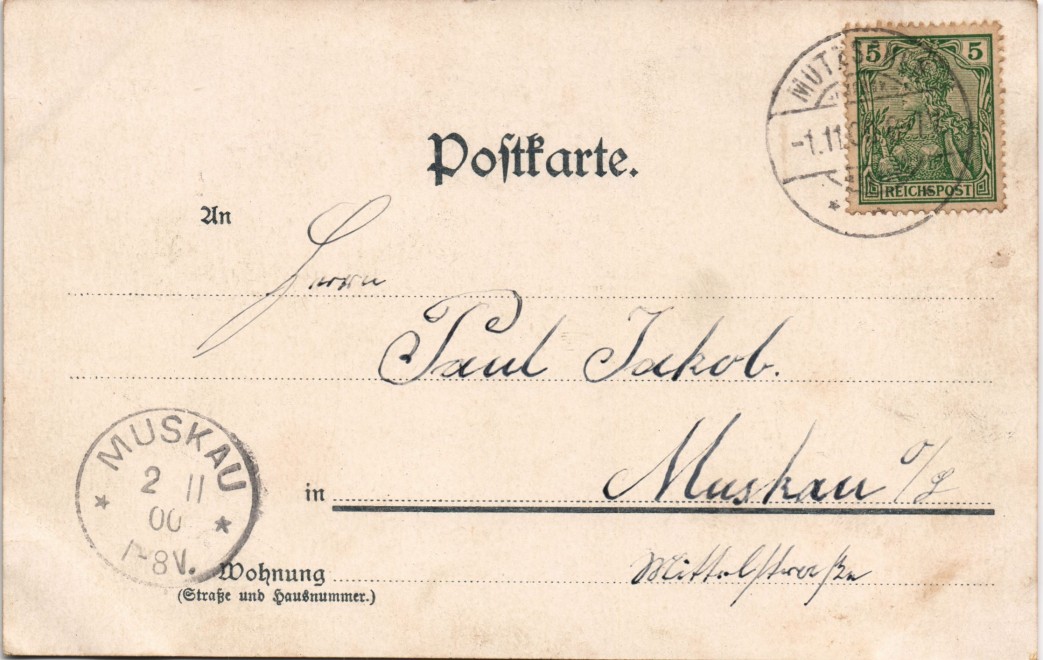 5 5
-1.11
REICHSPOST
Postkarte.
An
Herrn
Paul Jakob.
MUSKAU
2 11
00
1-8V.
in Muskau o/
Wohnung Mittelstraße
(Straße und Hausnummer.)